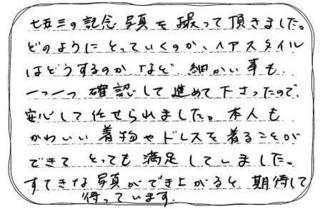 七五三の記念写真を撮って頂きました。
どのようにとっていくのか、ヘアスタイル
はどうするのかなど、細かい事も
一つ一つ確認して進めて下さったので、
安心して任せられました。本人も
かわいい着物やドレスを着ることが
できてとっても満足していました。
すてきな写真ができ上がると、期待して
待っています。